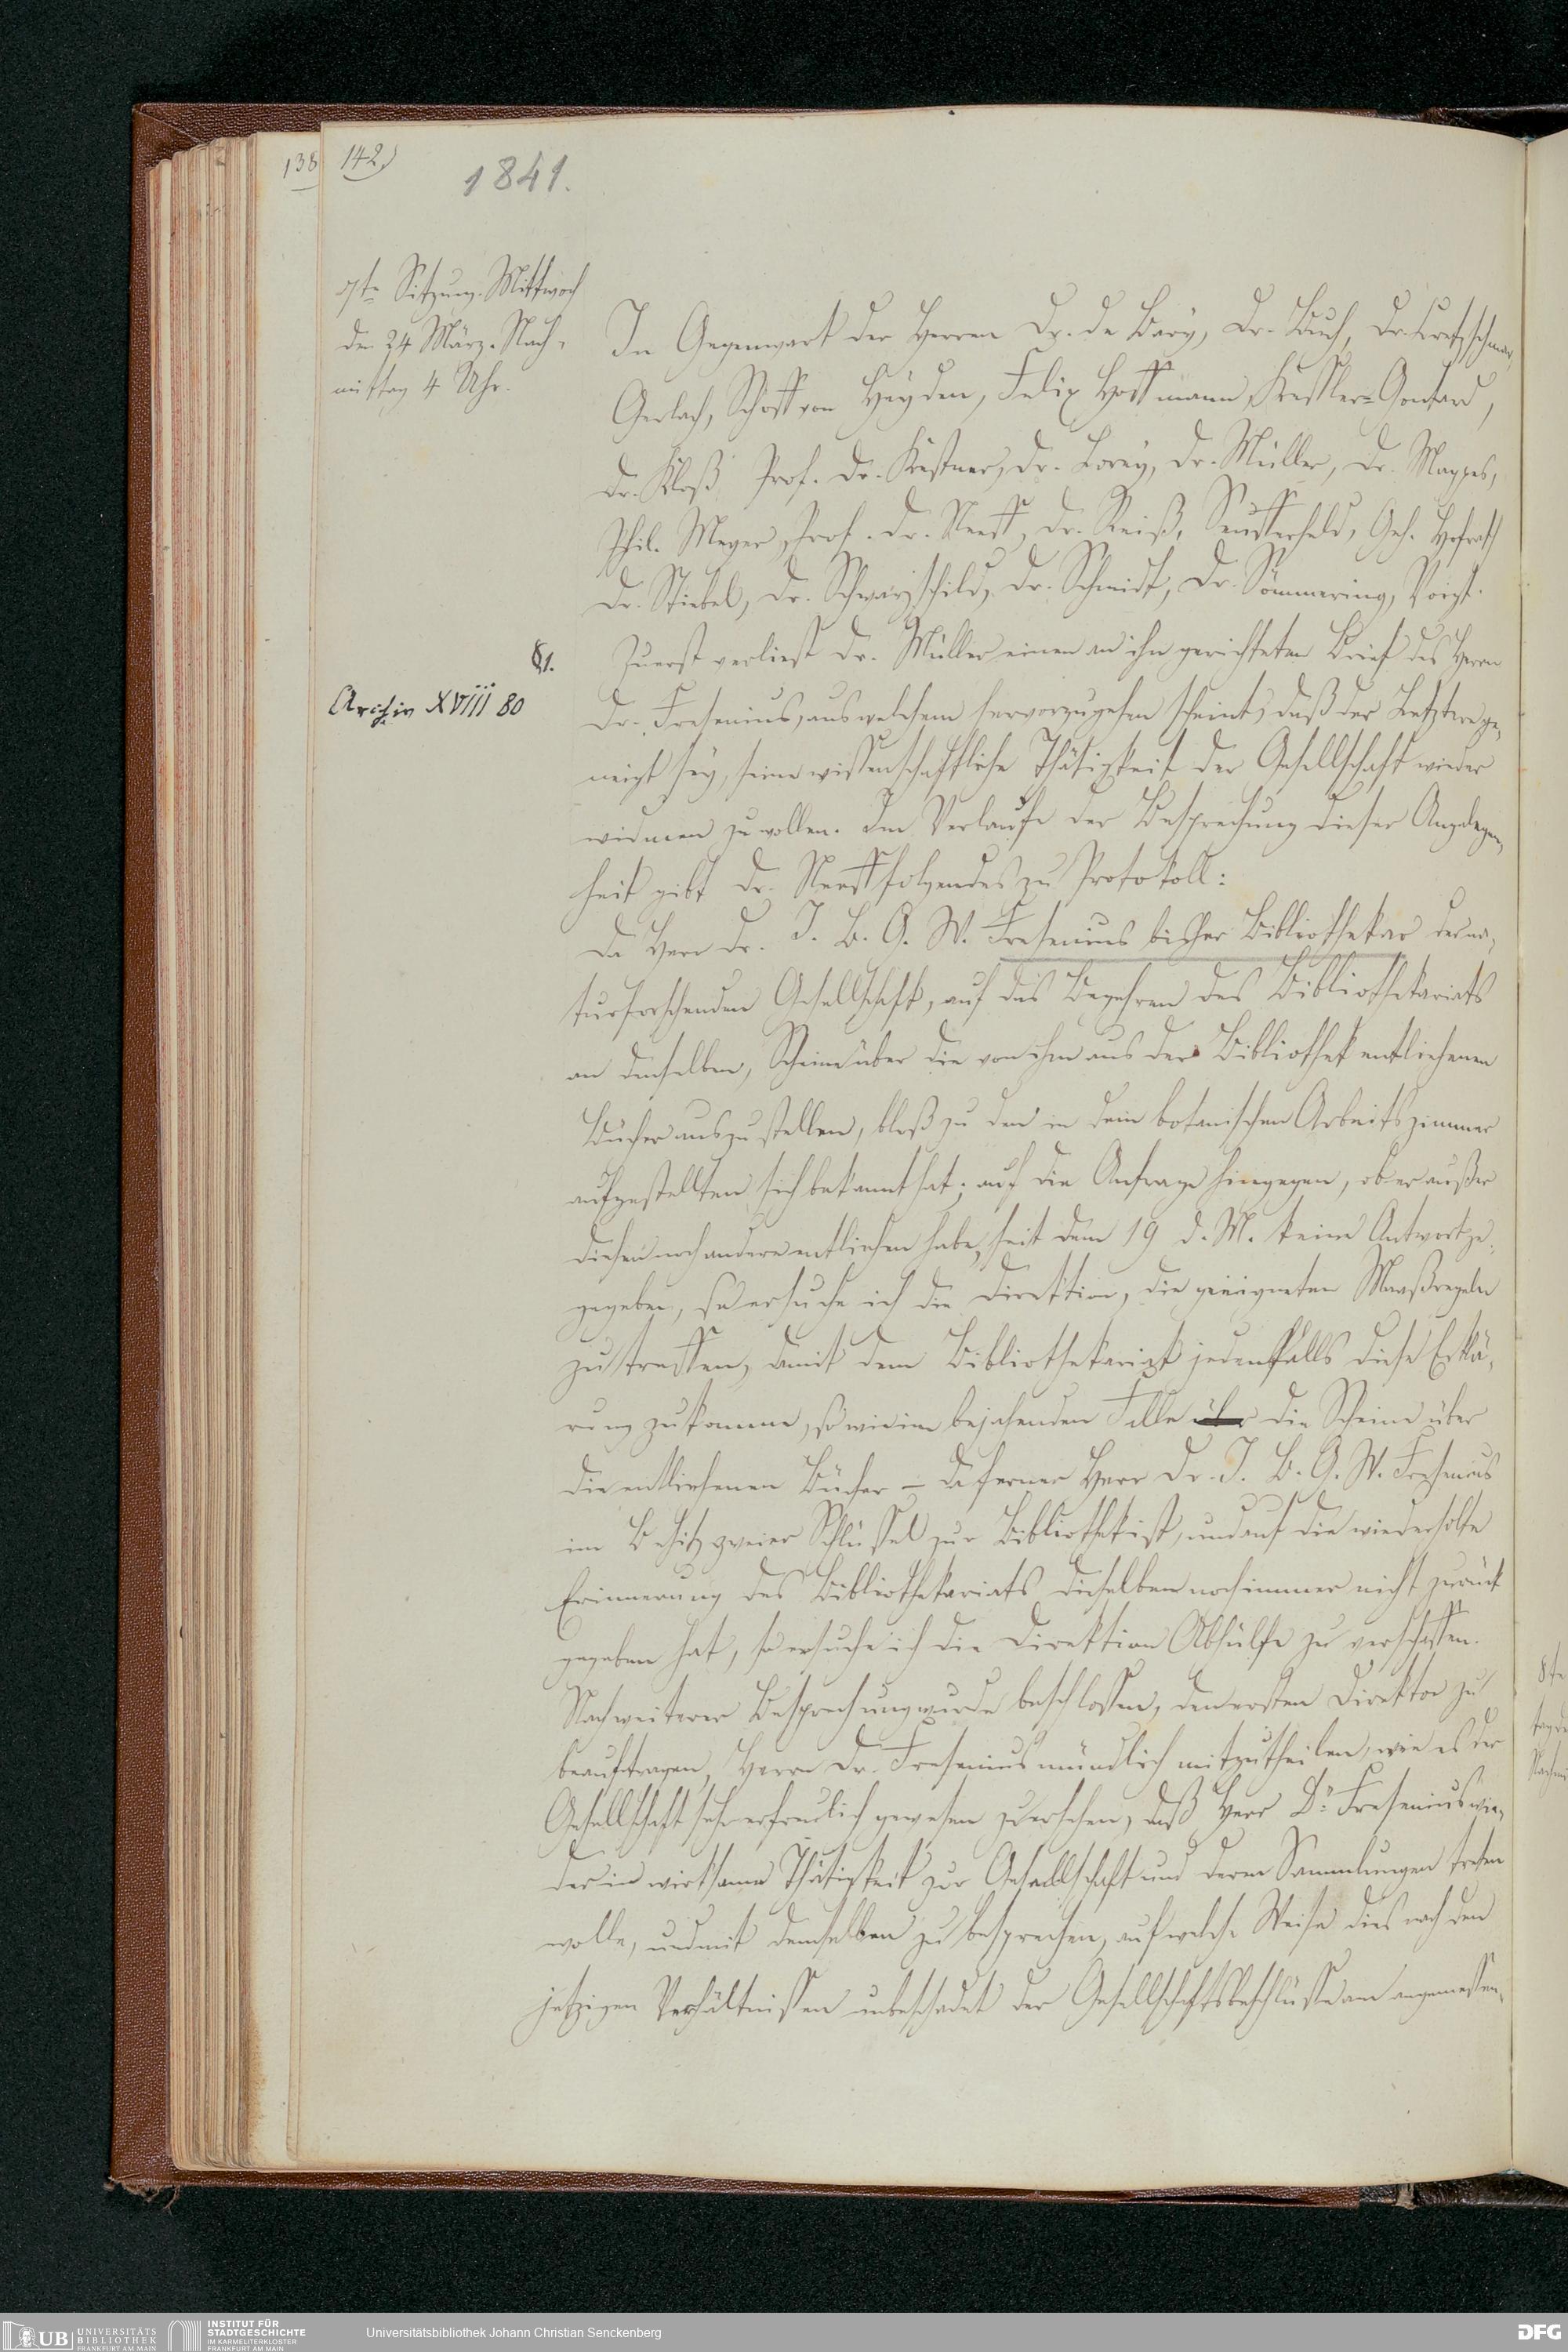 138
142)
1841.
7te Sitzung. Mittwoch
den 24 März. Nach-
mittag 4 Uhr.
In Gegenwart der Herren Dr. de Bary, Dr. Buch, Dr. Cretzschmar,
Gerlach, Schöff von Heyden, Felix Hoffmann, Kessler-Gontard,
Dr. Kloß, Prof. Dr. Kestner, Dr. Lorey, Dr. Müller, Dr. Mappes,
Phil. Meyer, Prof. Dr. Neeff, Dr. Reiß, Seufferheld, Geh. Hofrath
Dr. Stiebel, Dr. Schwarzschild, Dr. Schmidt, Dr. Sömmering, Voigt.
§1. Zuerst verliest Dr. Müller einen an ihn gerichteten Brief des Herrn
Archiv XVIII 80
Dr. Fresenius, aus welchem hervorzugehen scheint, daß der Letztere ge-
neigt sey, seine wissenschaftliche Thätigkeit der Gesellschaft wieder
widmen zu wollen. Im Verlaufe der Besprechung dieser Angelegen-
heit gibt Dr. Neeff folgendes zu Protokoll:
Da Herr Dr. J. B. G. W. Fresenius bisher Bibliothekar der na-
turforschenden Gesellschaft, auf das Begehren des Bibliothekariats
an denselben, Scheine über die von ihm aus der Bibliothek entliehenen
Bücher auszustellen, bloß zu den in dem botanischen Arbeitszimmer
aufgestellten sich bekannt hat; auf die Anfrage hingegen, ob er außer
diesen noch andere entliehen habe, seit dem 19 d. M. keine Antwort ge-
gegeben, so ersuche ich die Direktion, die geeigneten Maaßregeln
zu treffen, damit dem Bibliothekariat jedenfalls diese Erklä-
rung zukomme, so wie im bejahenden Falle über die Scheine über
die entliehenen Bücher – Da ferner Herr Dr. J. B. G. W. Fresenius
im Besitz zweier Schlüssel zur Bibliothek ist, und auf die wiederholte
Erinnerung des Bibliothekariats dieselben noch immer nicht zurück
gegeben hat, so ersuche ich die Direktion Abhülfe zu verschaffen.
Nach weiterer Besprechung wurde beschlossen, den ersten Direktor zu
beauftragen, Herrn Dr. Fresenius mündlich mitzutheilen, wie es der
Gesellschaft sehr erfreulich gewesen zu ersehen, daß Herr Dr Fresenius wie-
der in wirksame Thätigkeit zur Gesellschaft und deren Sammlungen treten
wolle, und mit demselben zu besprechen, auf welche Weise dies nach den
jetzigen Verhältnissen unbeschadet der Gesellschaftsbeschlüsse am angemessen-
8te
UB UNIVERSITÄTS BIBLIOTHEK FRANKFURT AM MAIN
INSTITUT FÜR STADTGESCHICHTE IM KARMELITERKLOSTER FRANKFURT AM MAIN
Universitätsbibliothek Johann Christian Senckenberg
DFG